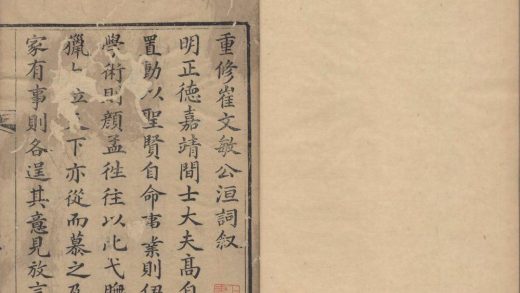 重修崔文敏公洹詞叙
明正德嘉靖間士大夫高自
置動以聖賢自命事業則伊
學術則顔孟徃徃以此弋
獵下亦從而慕之及
家有事則各逞其意見放言